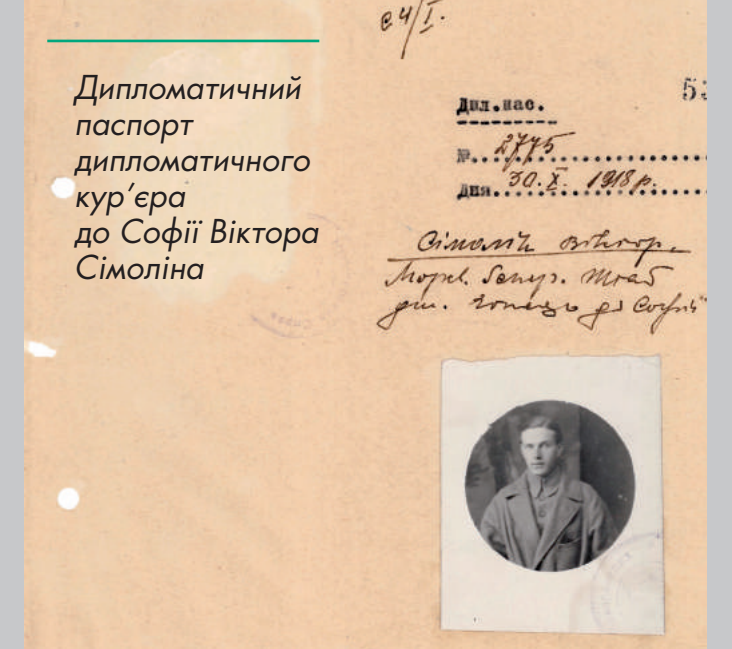 Дипломатичний
паспорт
дипломатичного
кур’єра
до Софії Віктора
Сімоліна
с. 4/I.
Дип.пас.
№. 2775
Дня. 30. X. 1918 р.
Сімолін Віктор.
Морс. Генер. Штаб
дип. гонець до Софії